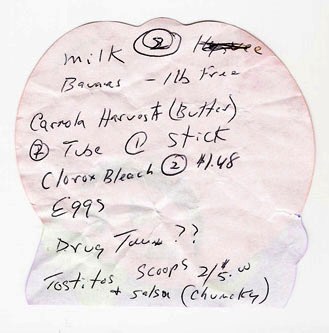 milk (2)
Bananas - 1 lb Free
Canola Harvest (Butter)
(2) Tube (1) Stick
Clorox Bleach (2) $1.48
Eggs
Drug Town ??
Tostitos Scoops 2/$5.00
+ salsa (Chuncky)